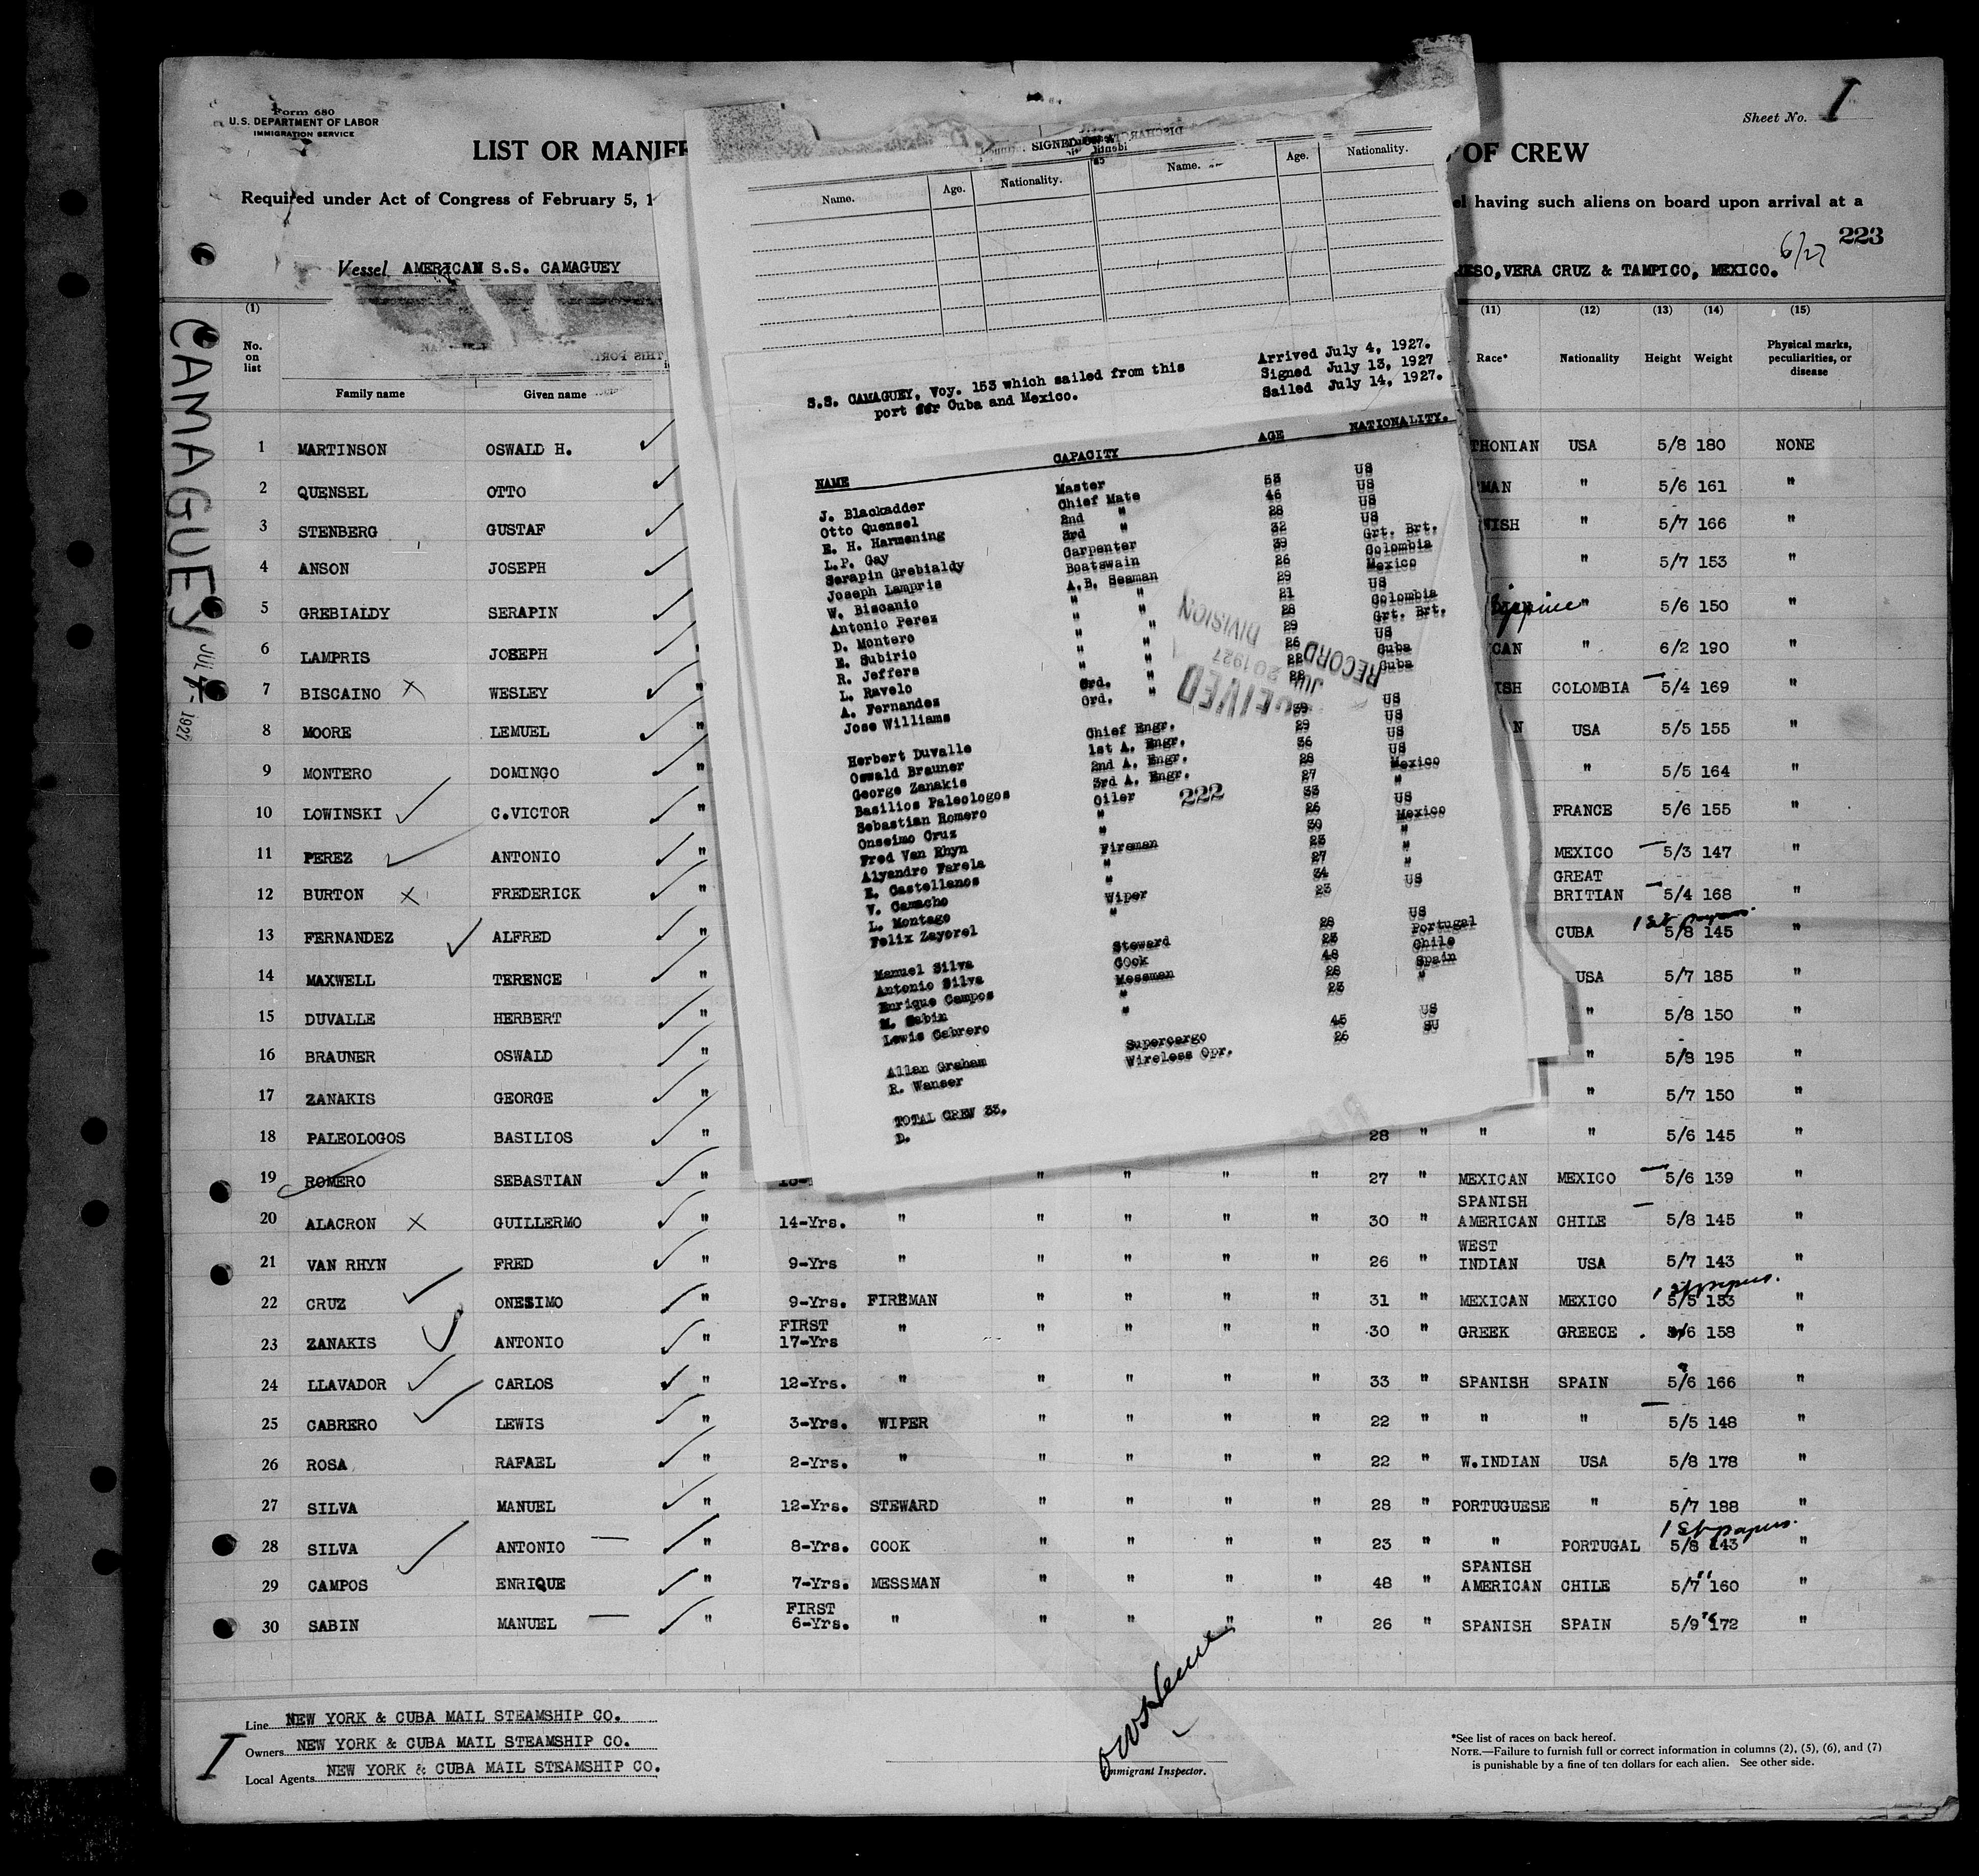 Form 680
U.S. DEPARTMENT OF LABOR
IMMIGRATION SERVICE
Sheet No. I
LIST OR MANIFE
OF CREW
Required under Act of Congress of February 5, 1
el having such aliens on board upon arrival at a
223
6/27
Vessel AMERICAN S.S. CAMAGUEY
ESO, VERA CRUZ & TAMPICO, MEXICO.
CAMAGUEY
JUL 4- 1927
(1) (11) (12) (13) (14) (15)
No. on list
Family name Given name
Race* Nationality Height Weight Physical marks, peculiarities, or disease
1 MARTINSON OSWALD H. THONIAN USA 5/8 180 NONE
2 QUENSEL OTTO MAN " 5/6 161 "
3 STENBERG GUSTAF ISH " 5/7 166 "
4 ANSON JOSEPH " 5/7 153 "
5 GREBIALDY SERAPIN " 5/6 150 "
6 LAMPRIS JOSEPH CAN " 6/2 190 "
7 BISCAINO X WESLEY " ISH COLOMBIA 5/4 169 "
8 MOORE LEMUEL " N USA 5/5 155 "
9 MONTERO DOMINGO " " 5/5 164 "
10 LOWINSKI C.VICTOR " FRANCE 5/6 155 "
11 PEREZ ANTONIO " MEXICO 5/3 147 "
12 BURTON X FREDERICK " GREAT BRITIAN 5/4 168 "
1st papers.
13 FERNANDEZ ALFRED " CUBA 5/8 145 "
14 MAXWELL TERENCE " USA 5/7 185 "
15 DUVALLE HERBERT " " 5/8 150 "
16 BRAUNER OSWALD " " 5/8 195 "
17 ZANAKIS GEORGE " " 5/7 150 "
18 PALEOLOGOS BASILIOS " 28 " " " 5/6 145 "
19 ROMERO SEBASTIAN " " " " " 27 " MEXICAN MEXICO 5/6 139 "
20 ALACRON X GUILLERMO " 14-Yrs. " " " " " 30 " SPANISH AMERICAN CHILE 5/8 145 "
21 VAN RHYN FRED " 9-Yrs " " " " " 26 " WEST INDIAN USA 5/7 143 "
1st papers.
22 CRUZ ONESIMO " 9-Yrs. FIREMAN " " " " 31 " MEXICAN MEXICO 5/5 153 "
23 ZANAKIS ANTONIO " FIRST 17-Yrs " " " " " 30 " GREEK GREECE 5/6 158 "
24 LLAVADOR CARLOS " 12-Yrs. " " " " " 33 " SPANISH SPAIN 5/6 166 "
25 CABRERO LEWIS " 3-Yrs. WIPER " " " " 22 " " " 5/5 148 "
26 ROSA RAFAEL " 2-Yrs. " " " " " 22 " W.INDIAN USA 5/8 178 "
27 SILVA MANUEL " 12-Yrs. STEWARD " " " " 28 " PORTUGUESE " 5/7 188 "
1st papers.
28 SILVA ANTONIO " 8-Yrs. COOK " " " " 23 " " PORTUGAL 5/8 143 "
29 CAMPOS ENRIQUE " 7-Yrs. MESSMAN " " " " 48 " SPANISH AMERICAN CHILE 5/7 160 "
30 SABIN MANUEL " FIRST 6-Yrs. " " " " " 26 " SPANISH SPAIN 5/9 172 "
Line NEW YORK & CUBA MAIL STEAMSHIP CO.
Owners NEW YORK & CUBA MAIL STEAMSHIP CO.
Local Agents NEW YORK & CUBA MAIL STEAMSHIP CO.
I
Immigrant Inspector.
*See list of races on back hereof.
NOTE.—Failure to furnish full or correct information in columns (2), (5), (6), and (7)
is punishable by a fine of ten dollars for each alien. See other side.
SIGNED ON
Name. Age. Nationality. Name. Age. Nationality.
S.S. CAMAGUEY, Voy. 153 which sailed from this
port for Cuba and Mexico.
Arrived July 4, 1927.
Signed July 13, 1927
Sailed July 14, 1927.
NAME
J. Blackadder
Otto Quensel
E. H. Harmening
L.P. Gay
Serapin Grebialdy
Joseph Lampris
W. Biscanio
Antonio Perez
D. Montero
E. Subirio
R. Jeffers
L. Ravelo
A. Fernandez
Jose Williams
Herbert Duvalle
Oswald Brauner
George Zanakis
Basilios Paleologos
Sebastian Romero
Onseimo Cruz
Fred Van Rhyn
Alyandro Farela
E. Castellanos
V. Camacho
L. Montago
Felix Zayorel
Manuel Silva
Antonio Silva
Enrique Campos
M. Sabin
Lewis Cabrero
Allan Graham
R. Wanser
TOTAL CREW 33.
D.
CAPACITY
Master
Chief Mate
2nd "
3rd "
Carpenter
Boatswain
A.B. Seaman
" "
" "
" "
" "
" "
Ord. "
Ord.
Chief Engr.
1st A. Engr.
2nd A. Engr.
3rd A. Engr.
Oiler
"
"
Fireman
"
"
Wiper
"
Steward
COok
Messman
"
"
Supercargo
Wireless Opr.
222
AGE
53
46
28
32
39
26
29
21
28
29
26
22
39
29
36
28
27
33
26
30
23
27
34
23
28
23
48
28
23
45
26
NATIONALITY.
US
US
US
US
Grt. Brt.
Colombia
Mexico
US
Colombia
Grt. Brt.
US
Cuba
Cuba
US
US
US
US
Mexico
"
US
Mexico
"
"
"
US
US
Portugal
Chile
Spain
"
US
SU
RECEIVED
JUL 20 1927
RECORD DIVISION